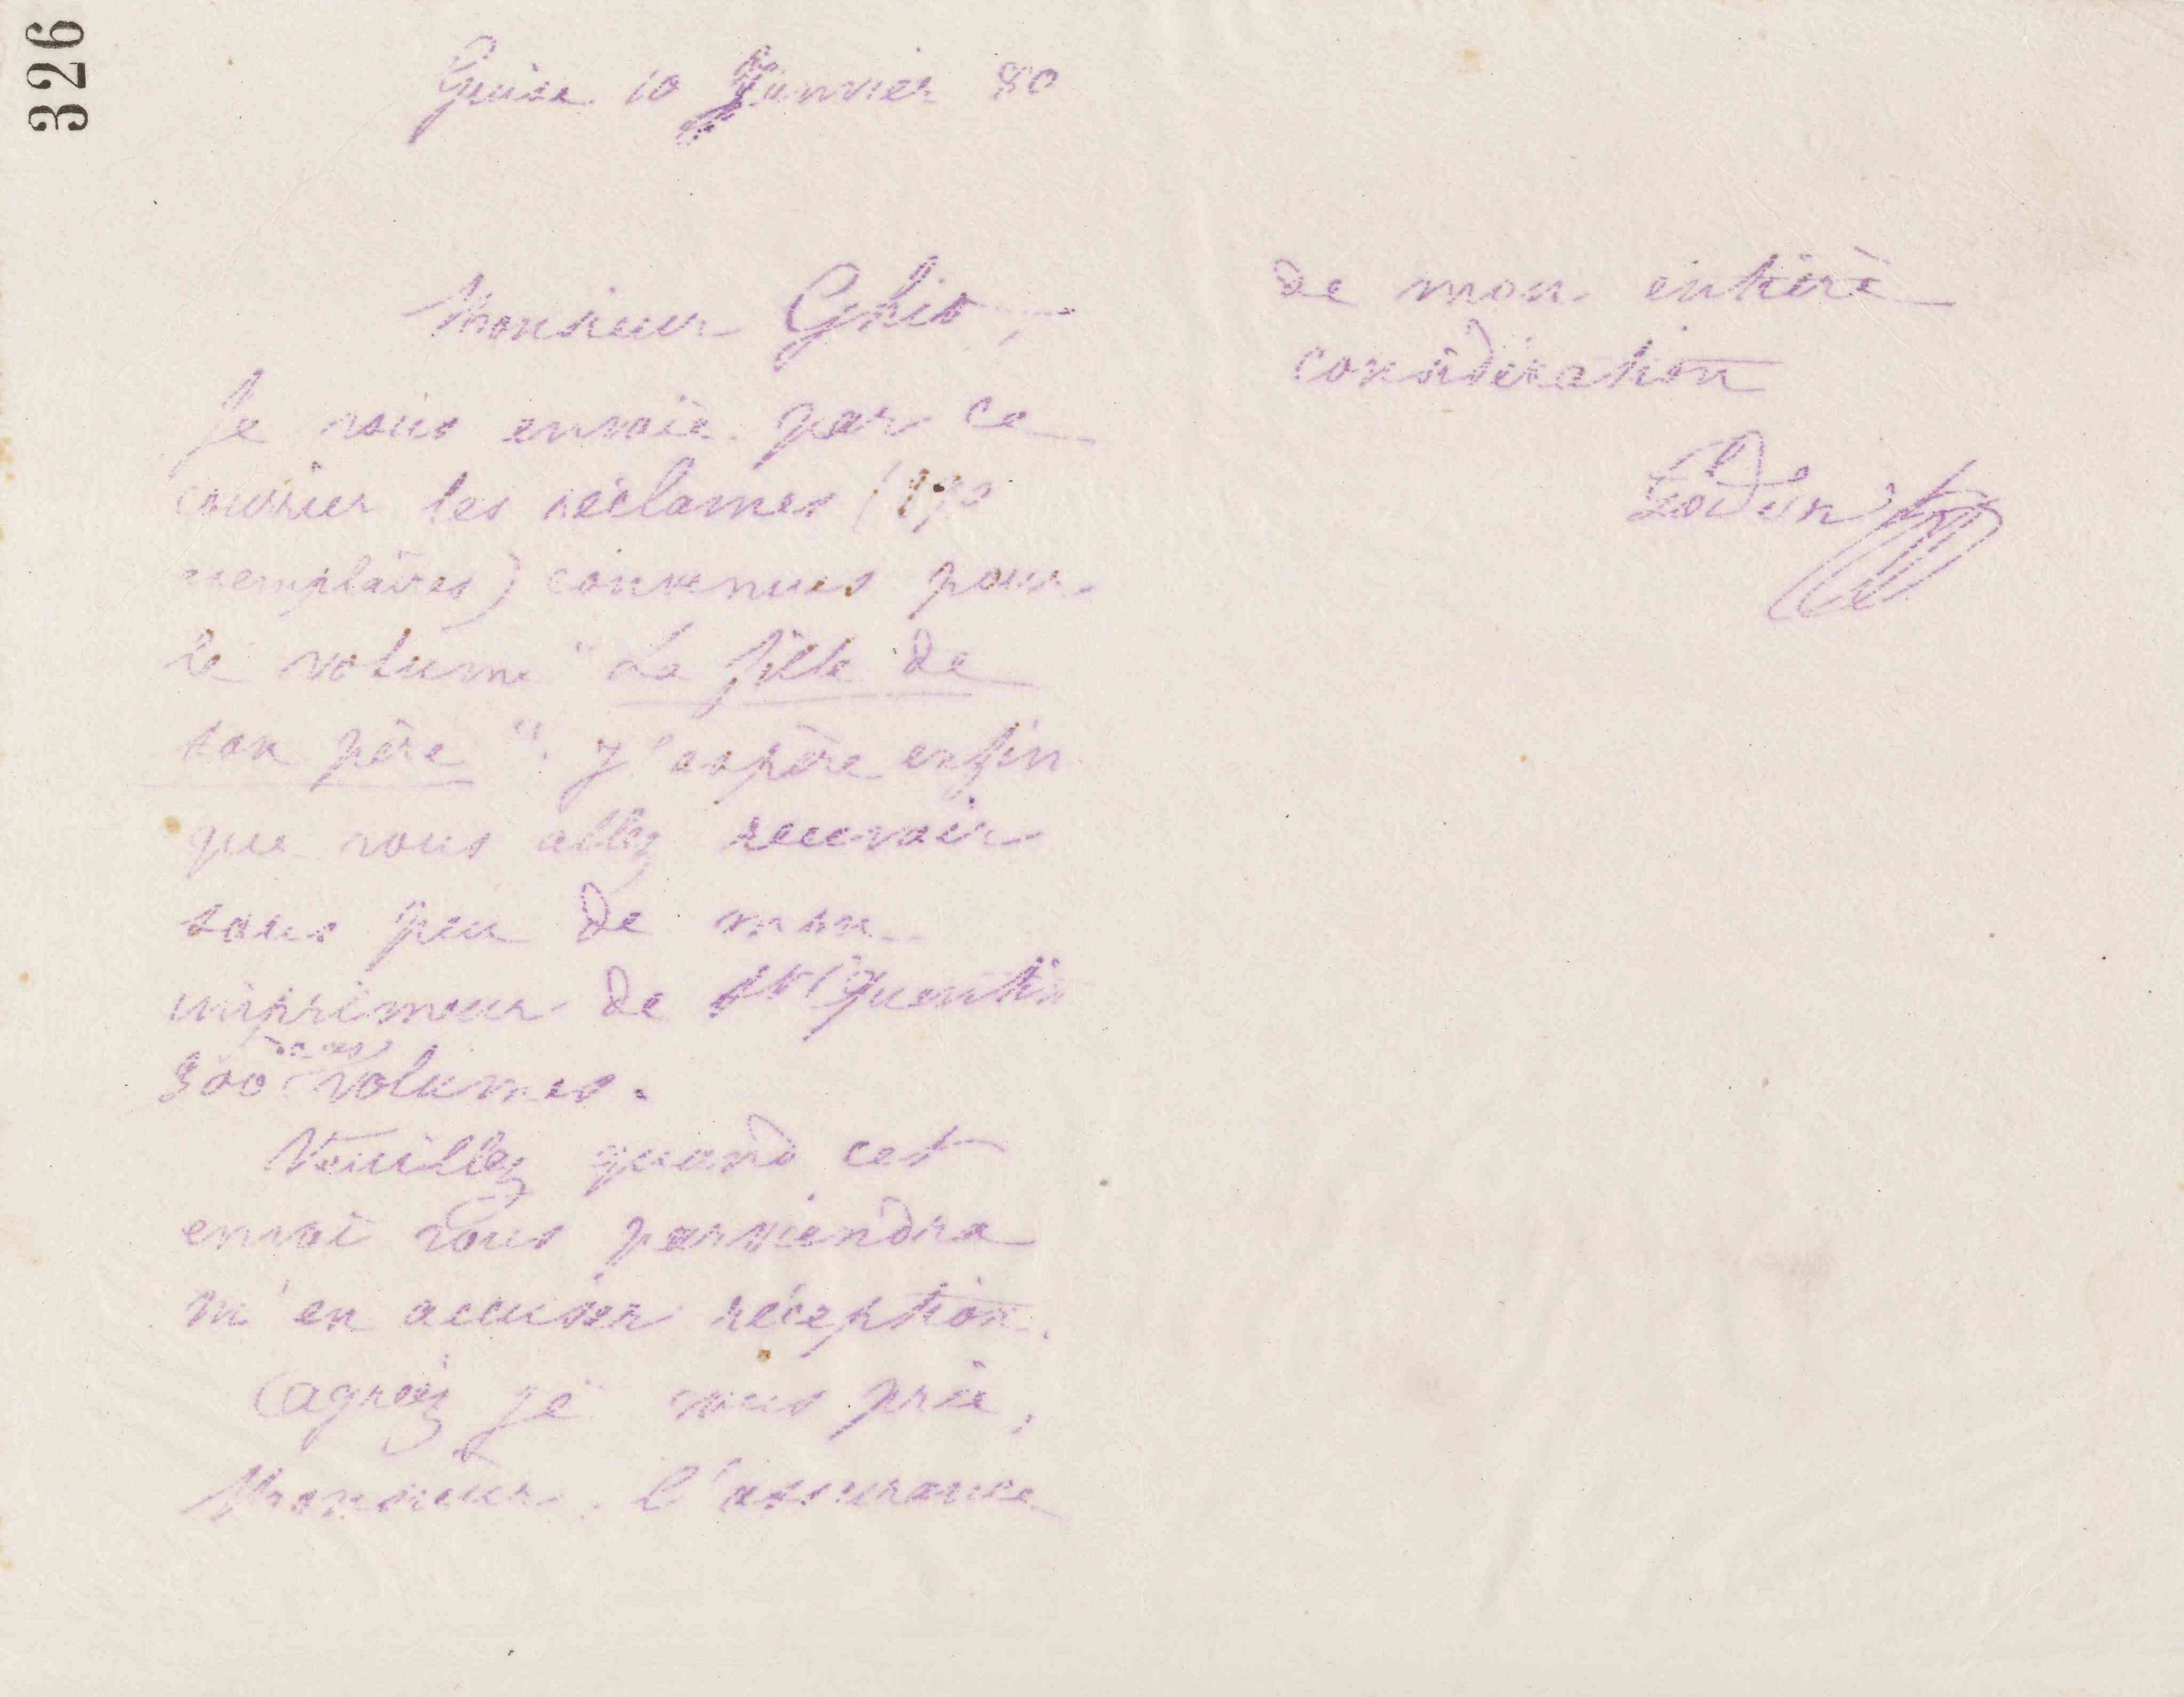 326
Guise 10 Janvier 80
Monsieur Ghio,
Je vous envoie par ce
courrier les réclames (190
exemplaires) convenues pour
le volume " La fille de
son père ". J'espère enfin
que vous allez recevoir
sous peu de mon
imprimeur de St Quentin
300 volumes.
Veuillez quand cet
envoi vous parviendra
m'en accuser réception.
Agréez je vous prie,
Monsieur, l'assurance
de mon entière
considération
Godin